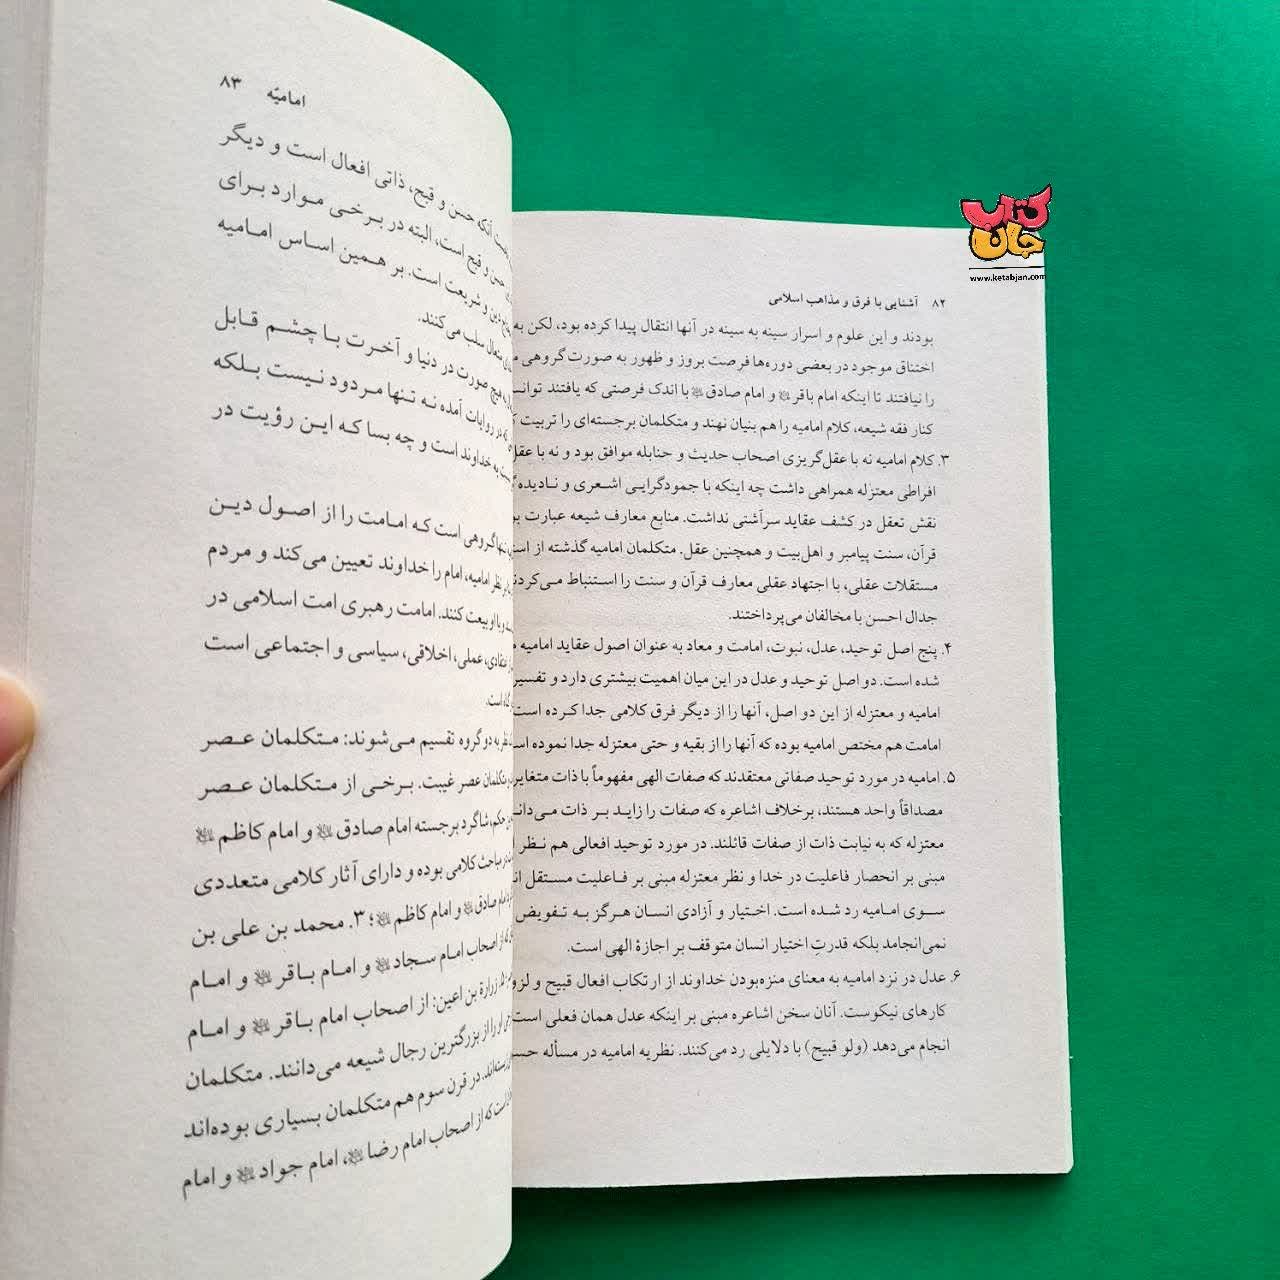 کتاب
جان
www.ketabjan.com
۸۲ آشنایی با فرق و مذاهب اسلامی
بودند و این علوم و اسرار سینه به سینه در آنها انتقال پیدا کرده بود، لکن به
اختناق موجود در بعضی دوره‌ها فرصت بروز و ظهور به صورت گروهی
را نیافتند تا اینکه امام باقر و امام صادق با اندک فرصتی که یافتند
کنار فقه شیعه، کلام امامیه را هم بنیان نهند و متکلمان برجسته‌ای را تربیت
۳. کلام امامیه نه با عقل‌گریزی اصحاب حدیث و حنابله موافق بود و نه با
افراطی معتزله همراهی داشت چه اینکه با جمودگرایی اشعری و
نقش تعقل در کشف عقاید سرآشتی نداشت. منابع معارف شیعه عبارت
قرآن، سنت پیامبر و اهل‌بیت و همچنین عقل. متکلمان امامیه گذشته از
مستقلات عقلی، با اجتهاد عقلی معارف قرآن و سنت را استنباط
جدال احسن با مخالفان می‌پرداختند.
۴. پنج اصل توحید، عدل، نبوت، امامت و معاد به عنوان اصول عقاید امامیه
شده است. دو اصل توحید و عدل در این میان اهمیت بیشتری دارد و تفسیر
امامیه و معتزله از این دو اصل، آنها را از دیگر فرق کلامی جدا کرده است
امامت هم مختص امامیه بوده که آنها را از بقیه و حتی معتزله جدا نموده
۵. امامیه در مورد توحید صفاتی معتقدند که صفات الهی مفهوماً با ذات
مصداقاً واحد هستند، برخلاف اشاعره که صفات را زاید بر ذات
معتزله که به نیابت ذات از صفات قائلند. در مورد توحید افعالی هم نظر
مبنی بر انحصار فاعلیت در خدا و نظر معتزله مبنی بر فاعلیت مستقل
سوی امامیه رد شده است. اختیار و آزادی انسان هرگز به تفویض
نمی‌انجامد بلکه قدرتِ اختیار انسان متوقف بر اجازهٔ الهی است.
۶. عدل در نزد امامیه به معنای منزه‌بودن خداوند از ارتکاب افعال قبیح و
کارهای نیکوست. آنان سخن اشاعره مبنی بر اینکه عدل همان فعلی است
انجام می‌دهد (ولو قبیح) با دلایلی رد می‌کنند. نظریه امامیه در مسأله
امامیّه ۸۳
آنکه حسن و قبح، ذاتی افعال است و دیگر
حسن و قبح است، البته در برخی موارد برای
دین و شریعت است. بر همین اساس امامیه
متعال سلب می‌کنند.
هیچ صورت در دنیا و آخرت با چشم قابل
در روایات آمده نه تنها مردود نیست بلکه
به خداوند است و چه بسا که این رؤیت در
تنها گروهی است که امامت را از اصول دین
نظر امامیه، امام را خداوند تعیین می‌کند و مردم
و با او بیعت کنند. امامت رهبری امت اسلامی در
عملی، اخلاقی، سیاسی و اجتماعی است
است.
به دو گروه تقسیم می‌شوند: متکلمان عصر
متکلمان عصر غیبت. برخی از متکلمان عصر
حکم، شاگرد برجسته امام صادق و امام کاظم
مباحث کلامی بوده و دارای آثار کلامی متعددی
امام صادق و امام کاظم؛ ۳. محمد بن علی بن
از اصحاب امام سجاد و امام باقر و امام
زرارة بن اعین: از اصحاب امام باقر و امام
او را از بزرگترین رجال شیعه می‌دانند. متکلمان
در قرن سوم هم متکلمان بسیاری بوده‌اند
است که از اصحاب امام رضا، امام جواد و امام